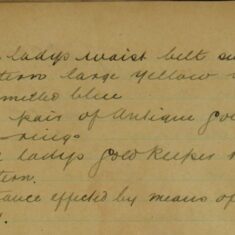 ladys waist belt
tern large yellow
metled blue
pair of Antique gol
rings
ladys gold keeper
tern.
ance effected by means of